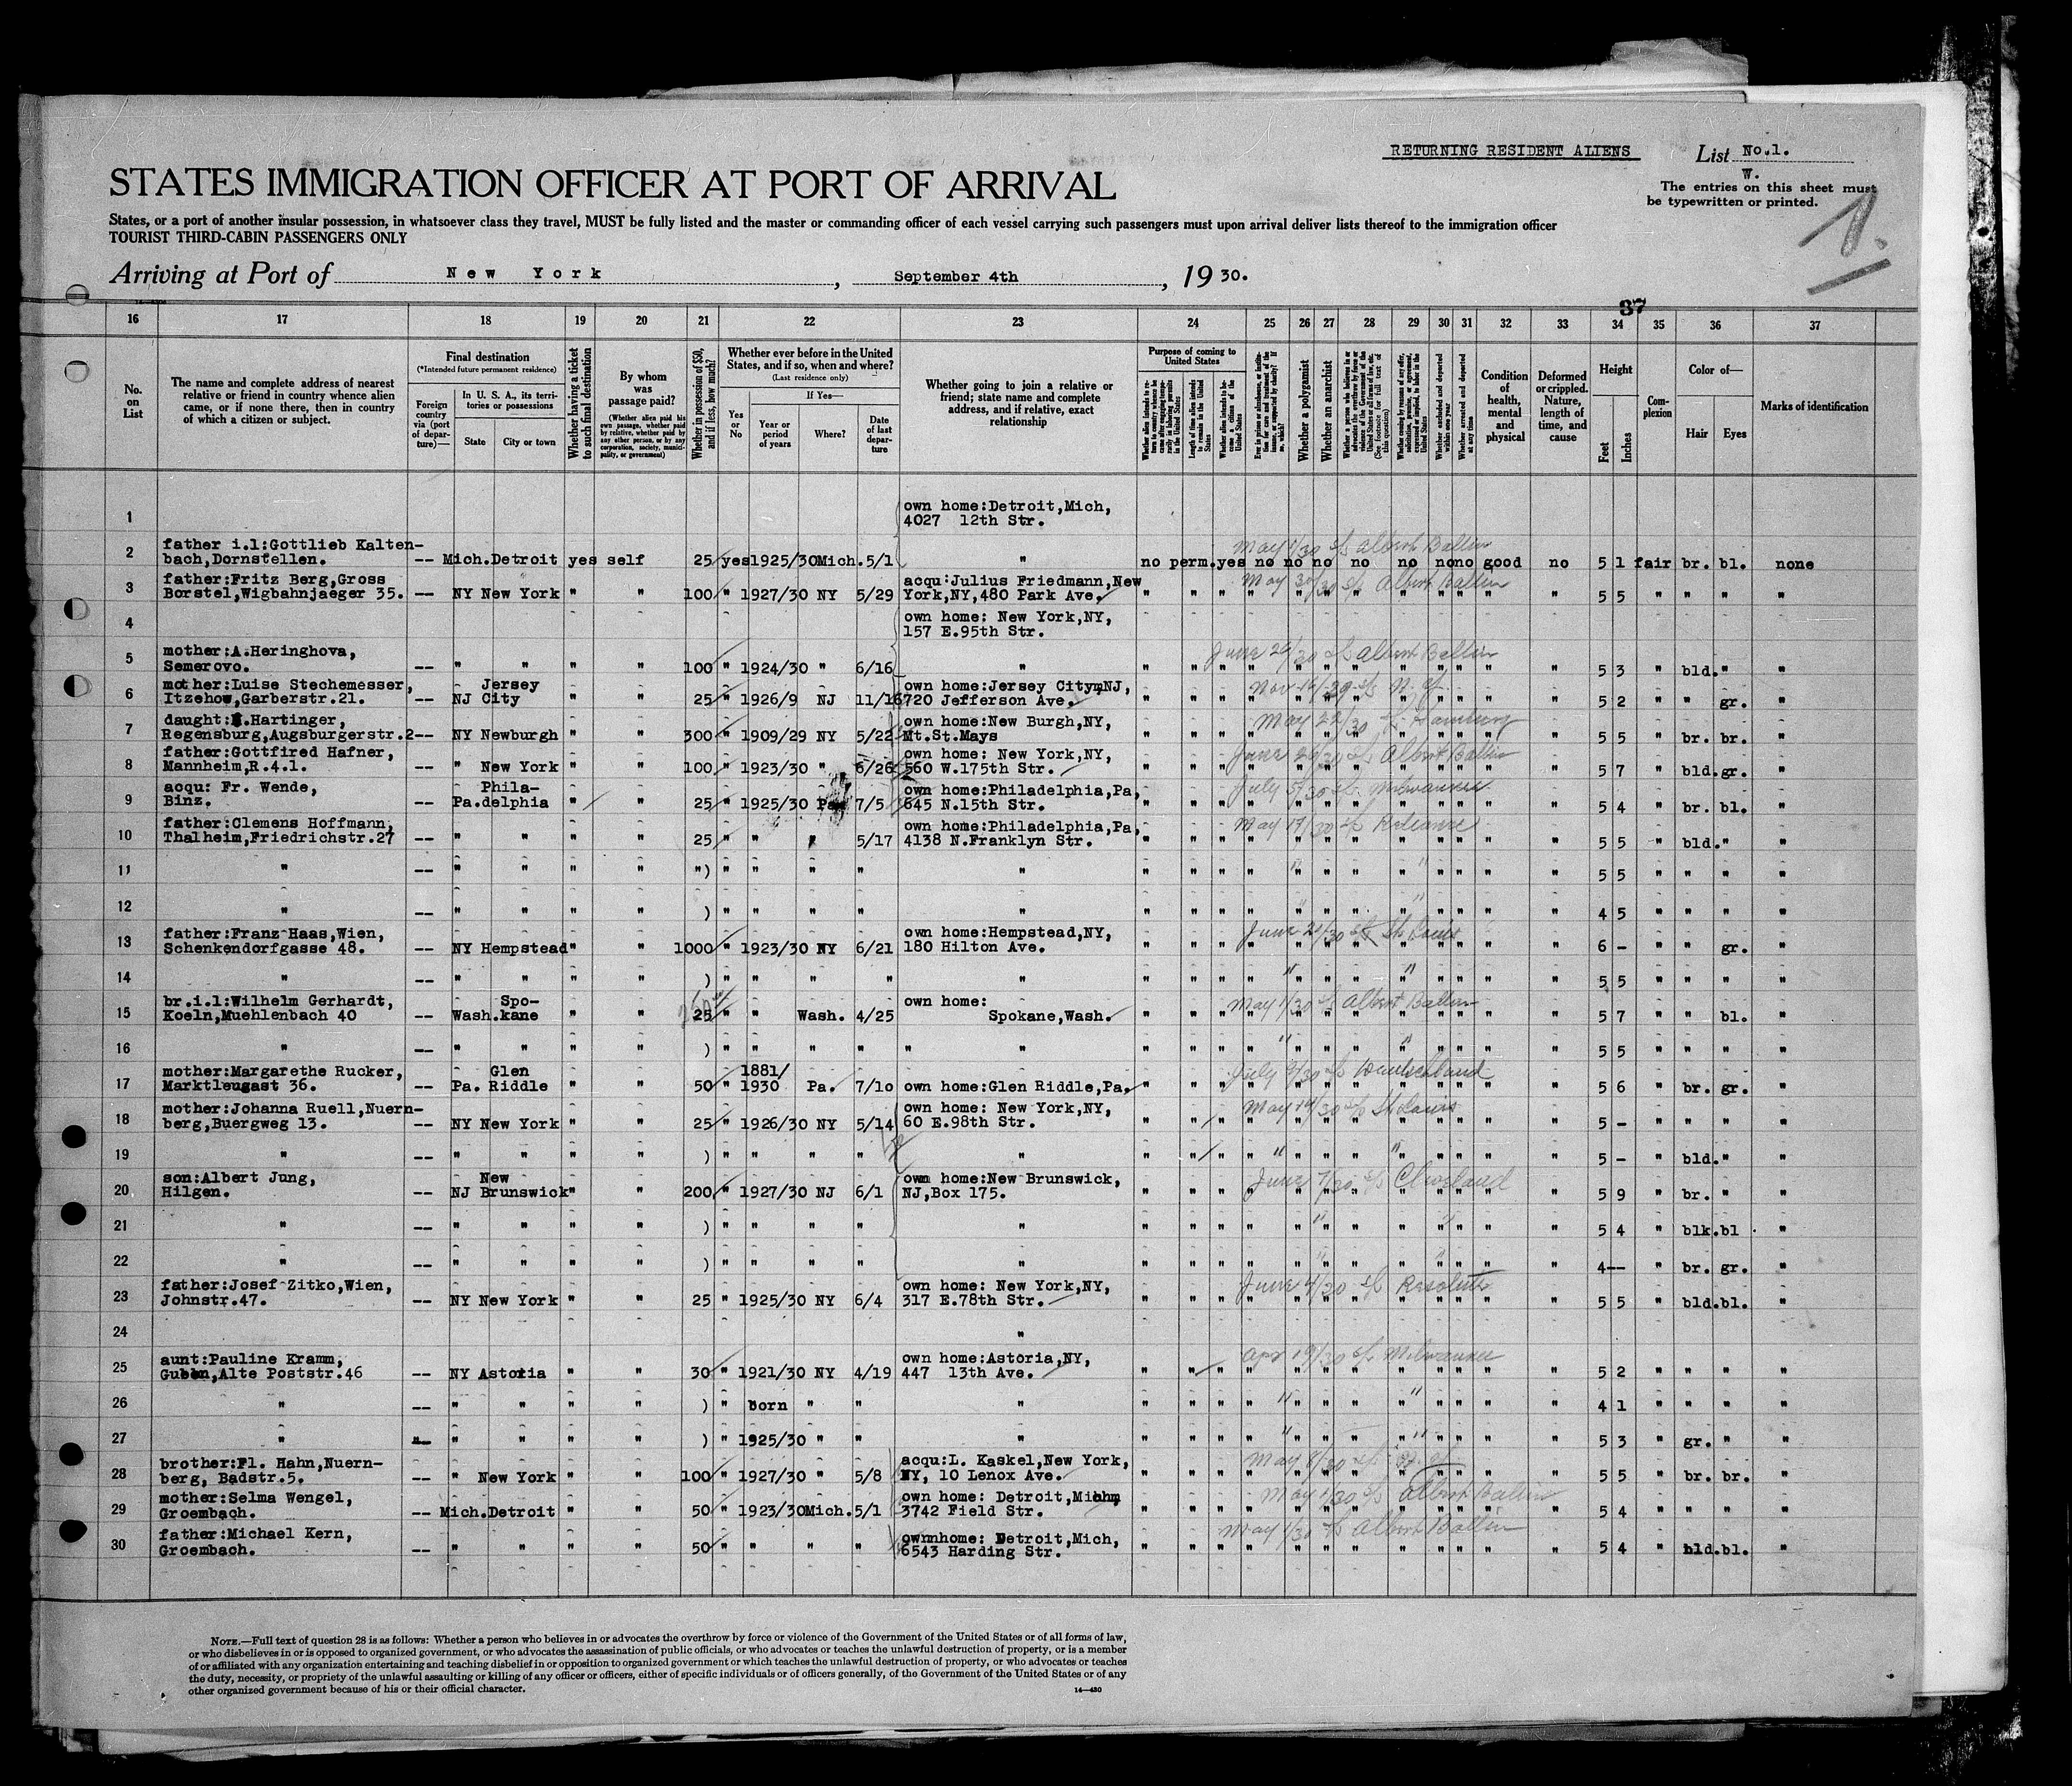 RETURNING RESIDENT ALIENS
List No.1.
W.
The entries on this sheet must
be typewritten or printed.
1.
STATES IMMIGRATION OFFICER AT PORT OF ARRIVAL
States, or a port of another insular possession, in whatsoever class they travel, MUST be fully listed and the master or commanding officer of each vessel carrying such passengers must upon arrival deliver lists thereof to the immigration officer
TOURIST THIRD-CABIN PASSENGERS ONLY
Arriving at Port of New York, September 4th, 1930.
37
16 17 18 19 20 21 22 23 24 25 26 27 28 29 30 31 32 33 34 35 36 37
No. on List
The name and complete address of nearest relative or friend in country whence alien came, or if none there, then in country of which a citizen or subject.
Final destination
(*Intended future permanent residence)
Foreign country via (port of departure)—
In U. S. A., its territories or possessions
State
City or town
Whether having a ticket to such final destination
By whom was passage paid?
(Whether alien paid his own passage, whether paid by relative, whether paid by any other person, or by any corporation, society, municipality, or government)
Whether in possession of $50, and if less, how much?
Whether ever before in the United States, and if so, when and where?
(Last residence only)
Yes or No
If Yes—
Year or period of years
Where?
Date of last departure
Whether going to join a relative or friend; state name and complete address, and if relative, exact relationship
Purpose of coming to United States
Whether a polygamist
Whether an anarchist
Condition of health, mental and physical
Deformed or crippled. Nature, length of time, and cause
Height
Feet
Inches
Complexion
Color of—
Hair
Eyes
Marks of identification
1 own home:Detroit,Mich,
4027 12th Str.
2 father i.l:Gottlieb Kalten- May 1/30 s/s Albert Ballin
bach,Dornstellen. -- Mich.Detroit yes self 25 yes 1925/30 Mich. 5/1 " no perm. yes no no no no no no no good no 5 1 fair br. bl. none
3 father:Fritz Berg,Gross acqu:Julius Friedmann,New May 30/30 s/s Albert Ballin
Borstel,Wigbahnjaeger 35. -- NY New York " " 100 " 1927/30 NY 5/29 York,NY,480 Park Ave. " " " " " " " " " " " " 5 5 " " " "
4 own home: New York,NY,
157 E.95th Str.
5 mother:A.Heringhova, June 26/30 s/s Albert Ballin
Semerovo. -- " " " " 100 " 1924/30 " 6/16 " " " " " " " " " " " " " 5 3 " bld. " "
6 mother:Luise Stechemesser, Jersey own home:Jersey City,NJ,
Itzehow,Garberstr.21. -- NJ City " " 25 " 1926/9 NJ 11/16 720 Jefferson Ave. " " " " " " " " " " " " 5 2 " " gr. "
7 daught: .Hartinger, own home:New Burgh,NY, May 22/30 s/s Hamburg
Regensburg,Augsburgerstr.2 -- NY Newburgh " " 300 " 1909/29 NY 5/22 Mt.St.Mays " " " " " " " " " " " " 5 5 " br. br. "
8 father:Gottfired Hafner, own home: New York,NY, June 26/30 s/s Albert Ballin
Mannheim,R.4.1. -- " New York " " 100 " 1923/30 " 6/26 560 W.175th Str. " " " " " " " " " " " " 5 7 " bld. gr. "
9 acqu: Fr. Wende, Phila- own home:Philadelphia,Pa, July 5/30 s/s Milwaukee
Binz. -- Pa.delphia " " 25 " 1925/30 Pa. 7/5 645 N.15th Str. " " " " " " " " " " " " 5 4 " br. bl. "
10 father:Clemens Hoffmann, own home:Philadelphia,Pa, May 17/30 s/s Reliance
Thalheim,Friedrichstr.27 -- " " " " 25 " " " 5/17 4138 N.Franklyn Str. " " " " " " " " " " " " 5 5 " bld. " "
11 " -- " " " " ") " " " " " " " " " " " " " " " " " " 5 5 " " " "
12 " -- " " " " ) " " " " " " " " " " " " " " " " " 4 5 " " " "
13 father:Franz Haas,Wien, own home:Hempstead,NY, June 21/30 s/s St. Louis
Schenkendorfgasse 48. -- NY Hempstead " " 1000 " 1923/30 NY 6/21 180 Hilton Ave. " " " " " " " " " " " " 6 - " " gr. "
14 " -- " " " " ) " " " " " " " " " " " " " " " " " 5 5 " " " "
15 br.i.l:Wilhelm Gerhardt, Spo- own home: May 1/30 s/s Albert Ballin
Koeln,Muehlenbach 40 -- Wash.kane " " 25 " " Wash. 4/25 Spokane,Wash. " " " " " " " " " " " " 5 7 " " bl. "
16 " -- " " " " ) " " " " " " " " " " " " " " " " " 5 5 " " " "
17 mother:Margarethe Rucker, Glen 1881/ July s/s Deutschland
Marktleugast 36. -- Pa. Riddle " " 50 " 1930 Pa. 7/10 own home:Glen Riddle,Pa. " " " " " " " " " " " " 5 6 " br. gr. "
18 mother:Johanna Ruell,Nuern- own home: New York,NY, May 14/30 s/s St Louis
berg,Buergweg 13. -- NY New York " " 25 " 1926/30 NY 5/14 60 E.98th Str. " " " " " " " " " " " " 5 - " " " "
19 " -- " " " " ) " " " " " " " " " " " " " " " " " 5 - " bld. " "
20 son:Albert Jung, New own home:New Brunswick, June 7/30 s/s Cleveland
Hilgen. -- NJ Brunswick " " 200 " 1927/30 NJ 6/1 NJ,Box 175. " " " " " " " " " " " " 5 9 " br. " "
21 " -- " " " " ) " " " " " " " " " " " " " " " " " 5 4 " blk. bl "
22 " -- " " " " ) " " " " " " " " " " " " " " " " " 4 -- " br. gr. "
23 father:Josef Zitko,Wien, own home: New York,NY, June 4/30 s/s Resolute
Johnstr.47. -- NY New York " " 25 " 1925/30 NY 6/4 317 E.78th Str. " " " " " " " " " " " " 5 5 " bld. bl. "
24 "
25 aunt:Pauline Kramm, own home:Astoria,NY, Apr 19/30 s/s Milwaukee
Guben,Alte Poststr.46 -- NY Astoria " " 30 " 1921/30 NY 4/19 447 13th Ave. " " " " " " " " " " " " 5 2 " " " "
26 " -- " " " " ) " born " " " " " " " " " " " " " " " " 4 1 " " " "
27 " -- " " " " ) " 1925/30 " " " " " " " " " " " " " " " " 5 3 " gr. " "
28 brother:Fl. Hahn,Nuern- acqu:L. Kaskel,New York, May 8/30 s/s
berg, Badstr.5. -- " New York " " 100 " 1927/30 " 5/8 NY, 10 Lenox Ave. " " " " " " " " " " " " 5 5 " br. br. "
29 mother:Selma Wengel, own home: Detroit,Mich, May 1/30 s/s Albert Ballin
Groembach. -- Mich.Detroit " " 50 " 1923/30 Mich. 5/1 3742 Field Str. " " " " " " " " " " " " 5 4 " " " "
30 father:Michael Kern, ownmhome: Detroit,Mich, May 1/30 s/s Albert Ballin
Groembach. -- " " " " 50 " " " " 6543 Harding Str. " " " " " " " " " " " " 5 4 " bld. bl. "
NOTE.—Full text of question 28 is as follows: Whether a person who believes in or advocates the overthrow by force or violence of the Government of the United States or of all forms of law,
or who disbelieves in or is opposed to organized government, or who advocates the assassination of public officials, or who advocates or teaches the unlawful destruction of property, or is a member
of or affiliated with any organization entertaining and teaching disbelief in or opposition to organized government or which teaches the unlawful destruction of property, or who advocates or teaches
the duty, necessity, or propriety of the unlawful assaulting or killing of any officer or officers, either of specific individuals or of officers generally, of the Government of the United States or of any
other organized government because of his or their official character.
14—430